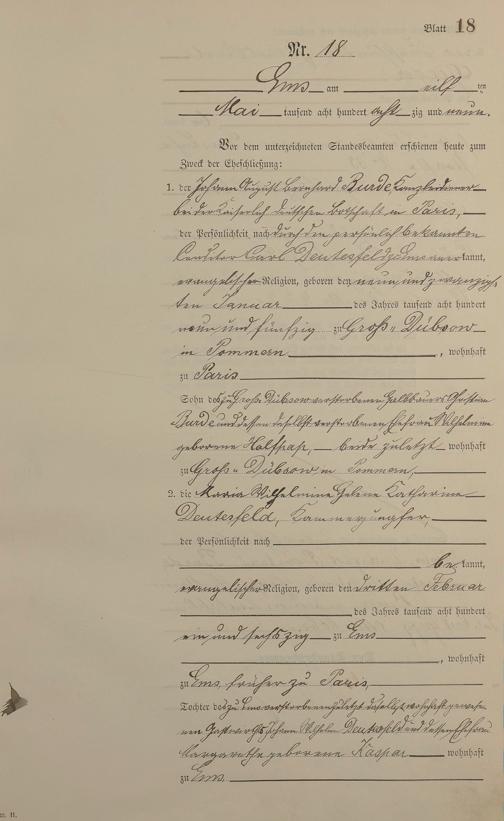 Blatt 18
Nr. 18
Ems am eilf ten
Mai tausend acht hundert acht zig und neun.
Vor dem unterzeichneten Standesbeamten erschienen heute zum
Zweck der Eheschließung:
1. der Johann August Bernhard Burde, Kanzleidiener
bei der Kaiserlich deutschen Botschaft in Paris,
der Persönlichkeit nach durch den persönlich bekannten
Carl Deutesfeld kannt,
evangelischer Religion, geboren den neun und zwanzigs-
ten Januar des Jahres tausend acht hundert
neun und fünfzig zu Groß-Dübsow
in Pommern, wohnhaft
zu Paris
Sohn des zu Groß Dübsow verstorbenen Halbbauers Christian
Burde und dessen daselbst verstorbenen Ehefrau Wilhelmine
geborene Halfpap, beide zuletzt wohnhaft
zu Groß-Dübsow in Pommern,
2. die Maria Wilhelmine Helene Katharina
Deutesfeld, Kammerjungfer,
der Persönlichkeit nach
be kannt,
evangelischer Religion, geboren den dritten Februar
des Jahres tausend acht hundert
ein und sechszig zu Ems
, wohnhaft
zu Ems, früher zu Paris
Tochter des zu Ems verstorbenen zuletzt daselbst wohnhaft gewese-
nen Gastwirths Johann Wilhelm Deutesfeld und dessen Ehefrau
Margarethe geborene Kaspar wohnhaft
zu Ems.